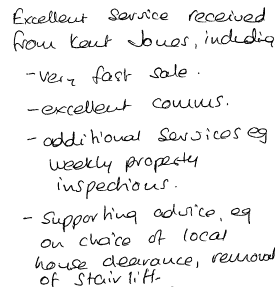 Excellent service received
from Kent Jones, including
- very fast sale.
- excellent comms.
- additional services eg
weekly property
inspections.
- Supporting advice, eg
on choice of local
house clearance, removal
of stairlift.